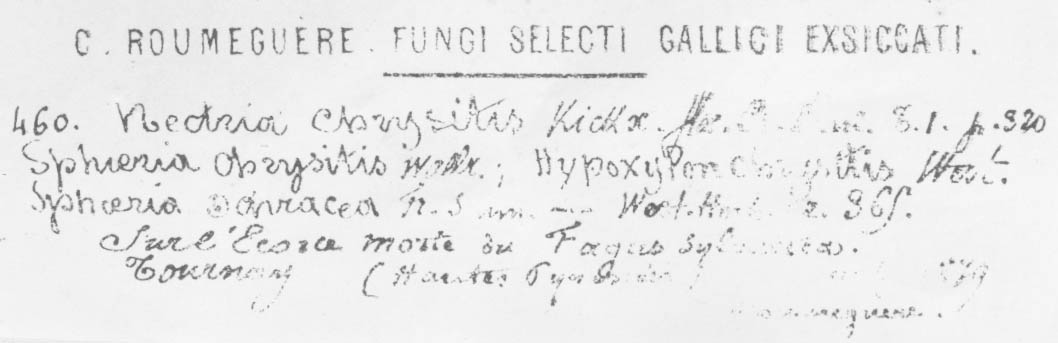 C. ROUMEGUÈRE. FUNGI SELECTI GALLICI EXSICCATI.
460. Nectria Chrysitis Kickx. 8.1. p. 320
Sphæria Chrysitis ; Hypoxylon Chrysitis West.
Sphæria West. Herb. 365.
Sur l'Ecorce morte du Fagus Sylvatica.
Tournay (Hautes Pyrénées) 1879
Roumeguère.